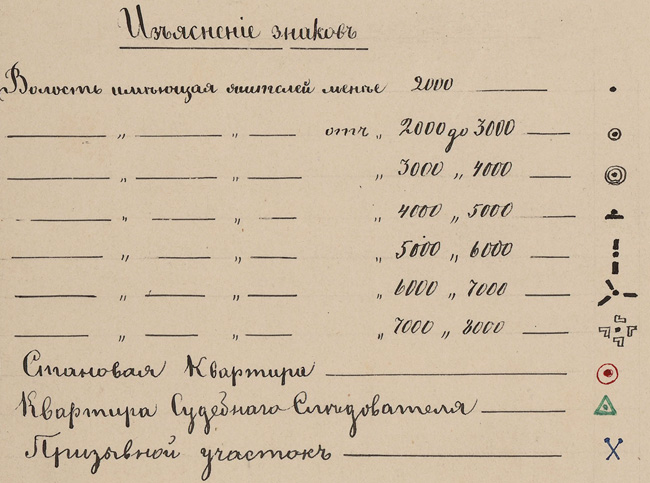 Изъясненіе знаковъ
Волость имѣющая жителей менѣе 2000
„ „ отъ „ 2000 до 3000
„ „ „ 3000 „ 4000
„ „ „ 4000 „ 5000
„ „ „ 5000 „ 6000
„ „ „ 6000 „ 7000
„ „ „ 7000 „ 8000
Становая Квартира
Квартира Судебнаго Слѣдователя
Призывной участокъ